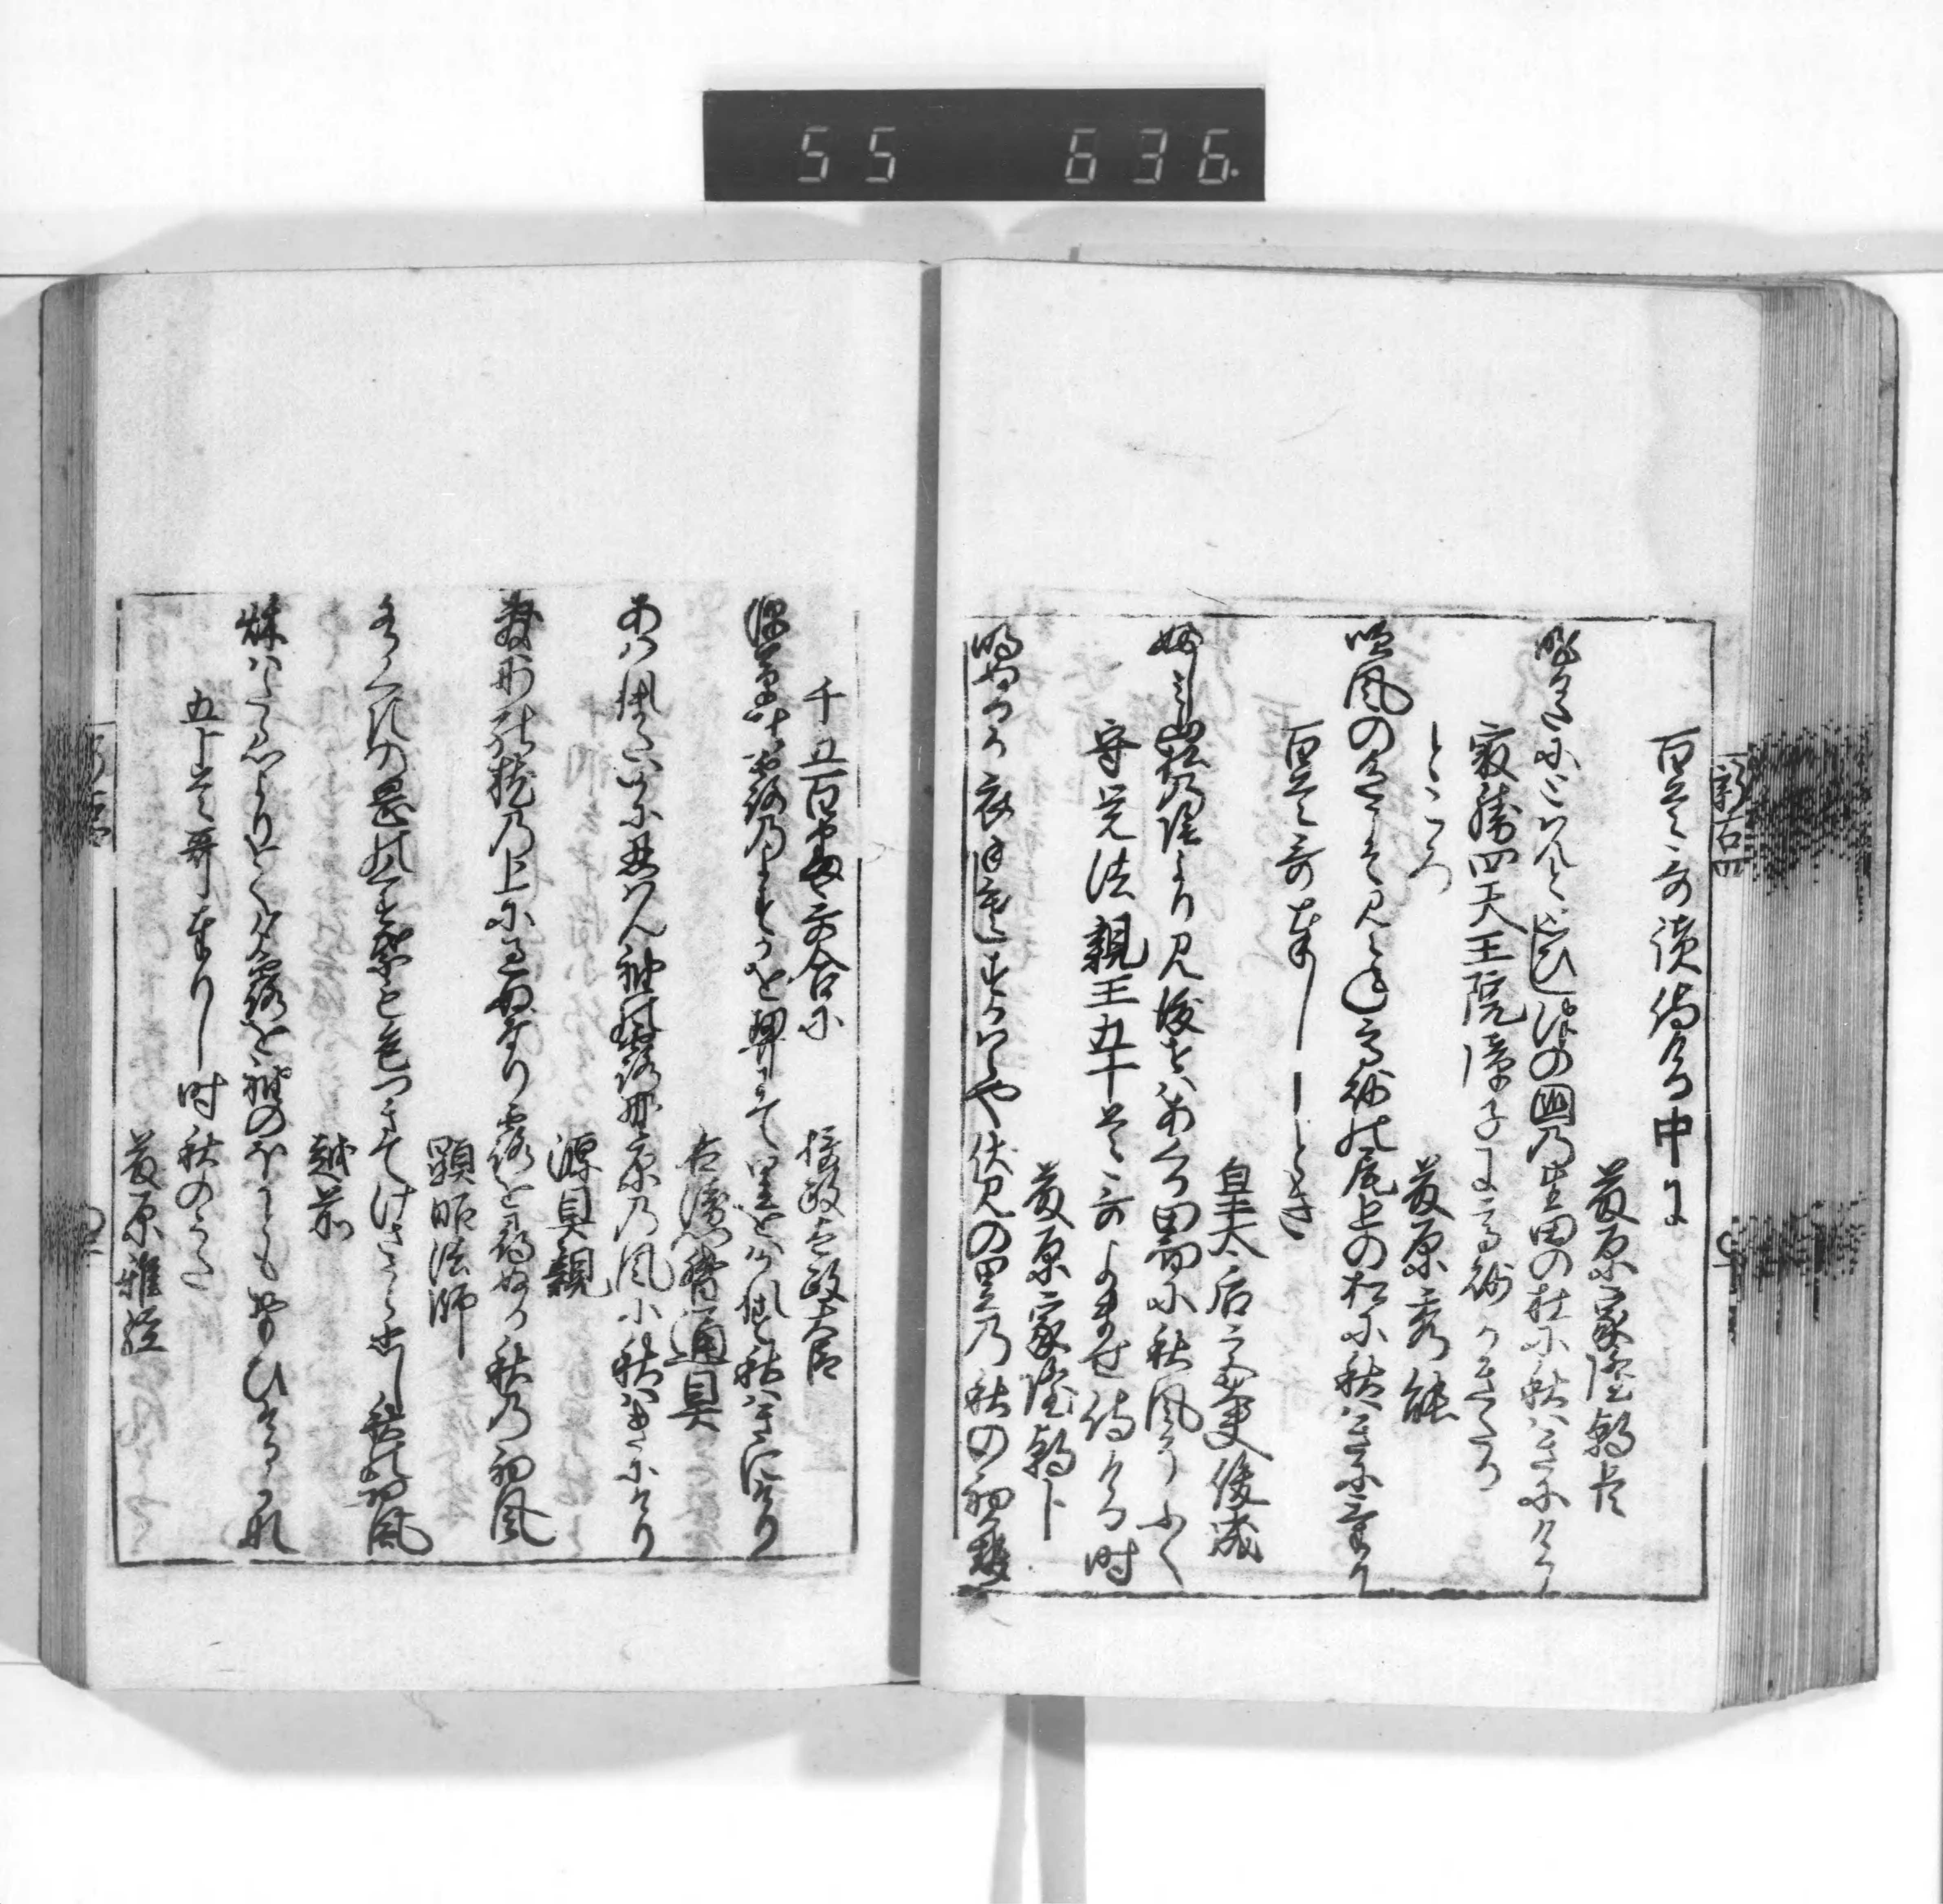 55 636
新古四
百首哥読侍ける中に
藤原家隆朝臣
昨日たにとはんと思ひし津の国乃生田の杜に秋はきにけり
最勝四天王院障子に高砂かきたる
ところ
藤原秀能
吹風の色こそ見えね高砂の尾上の松に秋はきにけり
百首哥奉りしとき
皇太后宮大夫俊成
伏見山松の陰より見渡せはあくる田面に秋風そふく
守覚法親王五十首哥よませ侍ける時
藤原家隆朝臣
明ぬるか衣手寒しすか原や伏見の里乃秋の初風
千五百番哥合に
摂政太政大臣
深草の露のよすかを契にて里をはかれす秋はきにけり
右衛門督通具
あはれまたいかに忍はん袖の露野原乃風に秋はきにけり
源具親
敷妙の枕乃上に過ぬなり露を尋ぬる秋乃初風
顕昭法師
水くきの岡の葛葉も色つきてけさうら悲し秋の初風
越前
秋はたゝ心よりをく夕露を袖のほかとも思ひけるかな
五十首哥奉りし時秋のうた
藤原雅経